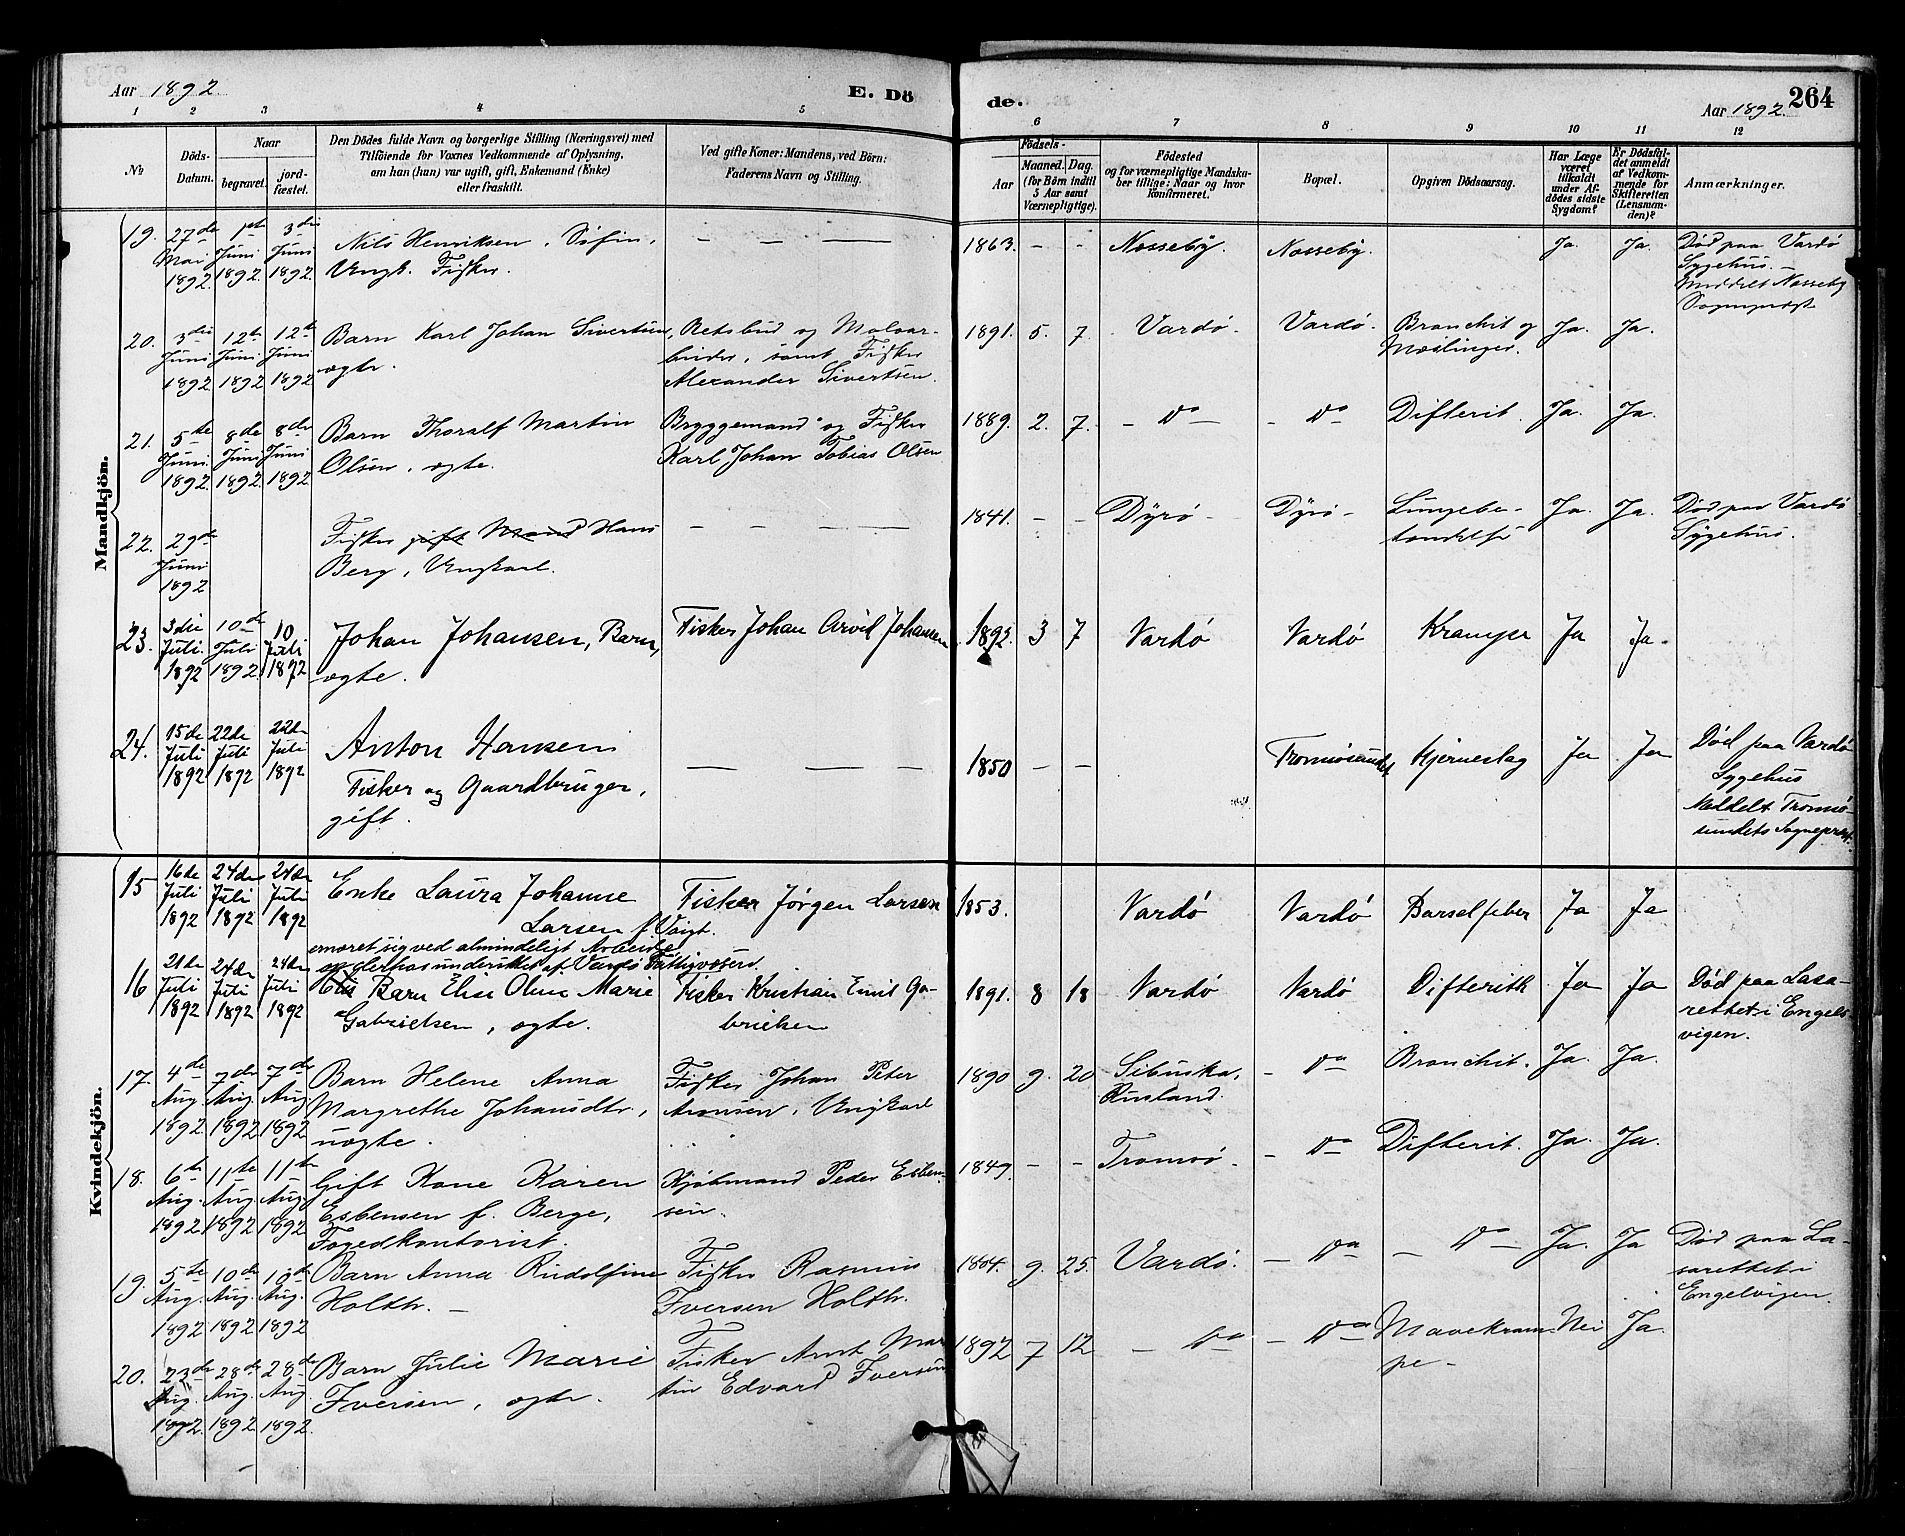 Aar 1892.
E. Dö
de.
Aar 1892.
264
1 2 3 4 5 6 7 8 9 10 11 12
No.
Döds-Datum.
Naar
begravet.
jord-fæstet.
Den Dödes fulde Navn og borgerlige Stilling (Næringsvei) med Tilföiende for Voxnes Vedkommende af Oplysning, om han (hun) var ugift, gift, Enkemand (Enke) eller fraskilt.
Ved gifte Koner: Mandens, ved Börn: Faderens Navn og Stilling.
Födsels-
Aar
Maaned.
Dag.
(for Börn indtil 5 Aar samt Værnepligtige).
Födested og for værnepligtige Mandskaber tillige: Naar og hvor konfirmeret.
Bopæl.
Opgiven Dödsaarsag.
Har Læge været tilkaldt under Afdödes sidste Sygdom?
Er Dödsfaldet anmeldt af Vedkommende for Skifteretten (Lensmanden)?
Anmærkninger.
Mandkjön.
19. 27de Mai 1892. 1ste Juni 1892. 3die Juni 1892. Nils Henriksen, Søfin, Ungk. Fisker. — — — 1863. - - Nesseby. Nesseby. Ja. Ja. Død paa Vardø Sygehus. — Meddelt Nesseby Sogneprest
20. 3die Juni 1892 12te Juni 1892 12te Juni 1892 Barn Karl Johan Sivertsen, ægte. Retsbud og Malerarbeider, samt Fisker Alexander Sivertsen. 1891. 5. 7. Vardø. Vardø. Bronchit og Mæslinger. Ja. Ja.
21. 5te Juni 1892. 8de Juni 1892. 8de Juni 1892 Barn Thoralf Martin Olsen, ægte. Bryggemand og Fisker Karl Johan Tobias Olsen 1889. 2. 7. - Do - - Do Difterit. Ja. Ja.
22. 29de Juni 1892 Fisker gift Mand Hans Berg, Ungkarl. — — — 1841. - - Dyrø - Dyrø - Lungebetændelse Ja. Ja. Død paa Vardø Sygehus.
23. 3die Juli 1892 10de Juli 1892. 10 Juli 1892 Johan Johansen, Barn, ægte. Fisker Johan Arvid Johansen 1892. 3 7 Vardø Vardø Krampe Ja Ja.
24. 15de Juli 1892 22de Juli 1892 22de Juli 1892 Anton Hansen Fisker og Gaardbruger, gift. — — — 1850 - - Tromsøsundet Hjerneslag Ja Ja Død paa Vardø Sygehus Meddelt Tromsøsundets Sogneprest.
Kvindekjön.
15 16de Juli 1892 24de Juli 1892 24de Juli 1892 Enke Laura Johanne Larsen f. Voigt. ernæret sig ved almindeligt Arbeide og derhos understøttet af Vardø Fattigvæsen. Fisker Jørgen Larsen 1853. Vardø Vardø Barselfeber Ja Ja
16 21de Juli 1892 24de Juli 1892 24de Juli 1892 Barn Elise Oline Marie Gabrielsen, ægte. Fisker Kristian Emil Gabrielsen 1891. 8 18 Vardø Vardø Difterith Ja Ja Død paa Lasarettet i Engelsvigen.
17. 4de Aug. 1892. 7de Aug. 1892 7de Aug 1892 Barn Helene Anna Margrethe Johansdtr, uægte. Fisker Johan Peter Aronsen, Ungkarl 1890 9. 20 Sibuska, Rusland. - Do Bronchit. Ja. Ja.
18. 6te Aug. 1892 11te Aug. 1892 11te Aug. 1892 Gift Kone Karen Esbensen f. Berge, Fogedkontorist. Kjøbmand Peder Esbensen. 1849. - - Tromsø. - Do Difterit. Ja. Ja.
19. 5te Aug. 1892 10de Aug. 1892 10de Aug. 1892 Barn Anna Rudolfine Holth. — Fisker Rasmus Iversen Holth. 1884. 9. 25. Vardø. — Do — Do — Ja. Ja Død paa Lasarettet i Engelvigen.
20. 23de Aug. 1892. 28de Aug. 1892 28de Aug 1892. Barn Julie Marie Iversen, ægte. Fisker Arnt Martin Edvard Iversen 1892 7 12 — Do — Do Mavekrampe - Nei Ja.